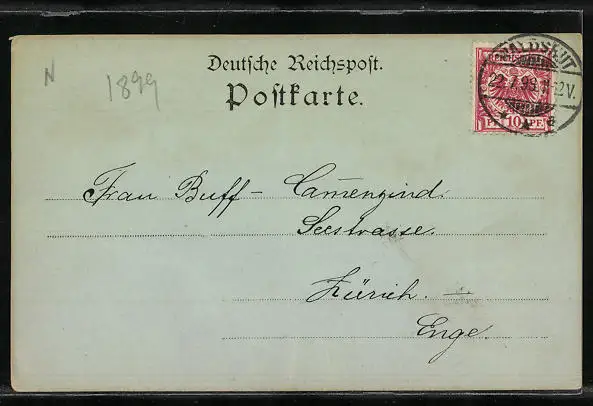 N
1899
Deutsche Reichspost.
Postkarte.
WALDSHUT
22.7.99.11-12V.
a
10 PF.
Frau Buff - Camenzind.
Seestrasse.
Zürich.
Enge.